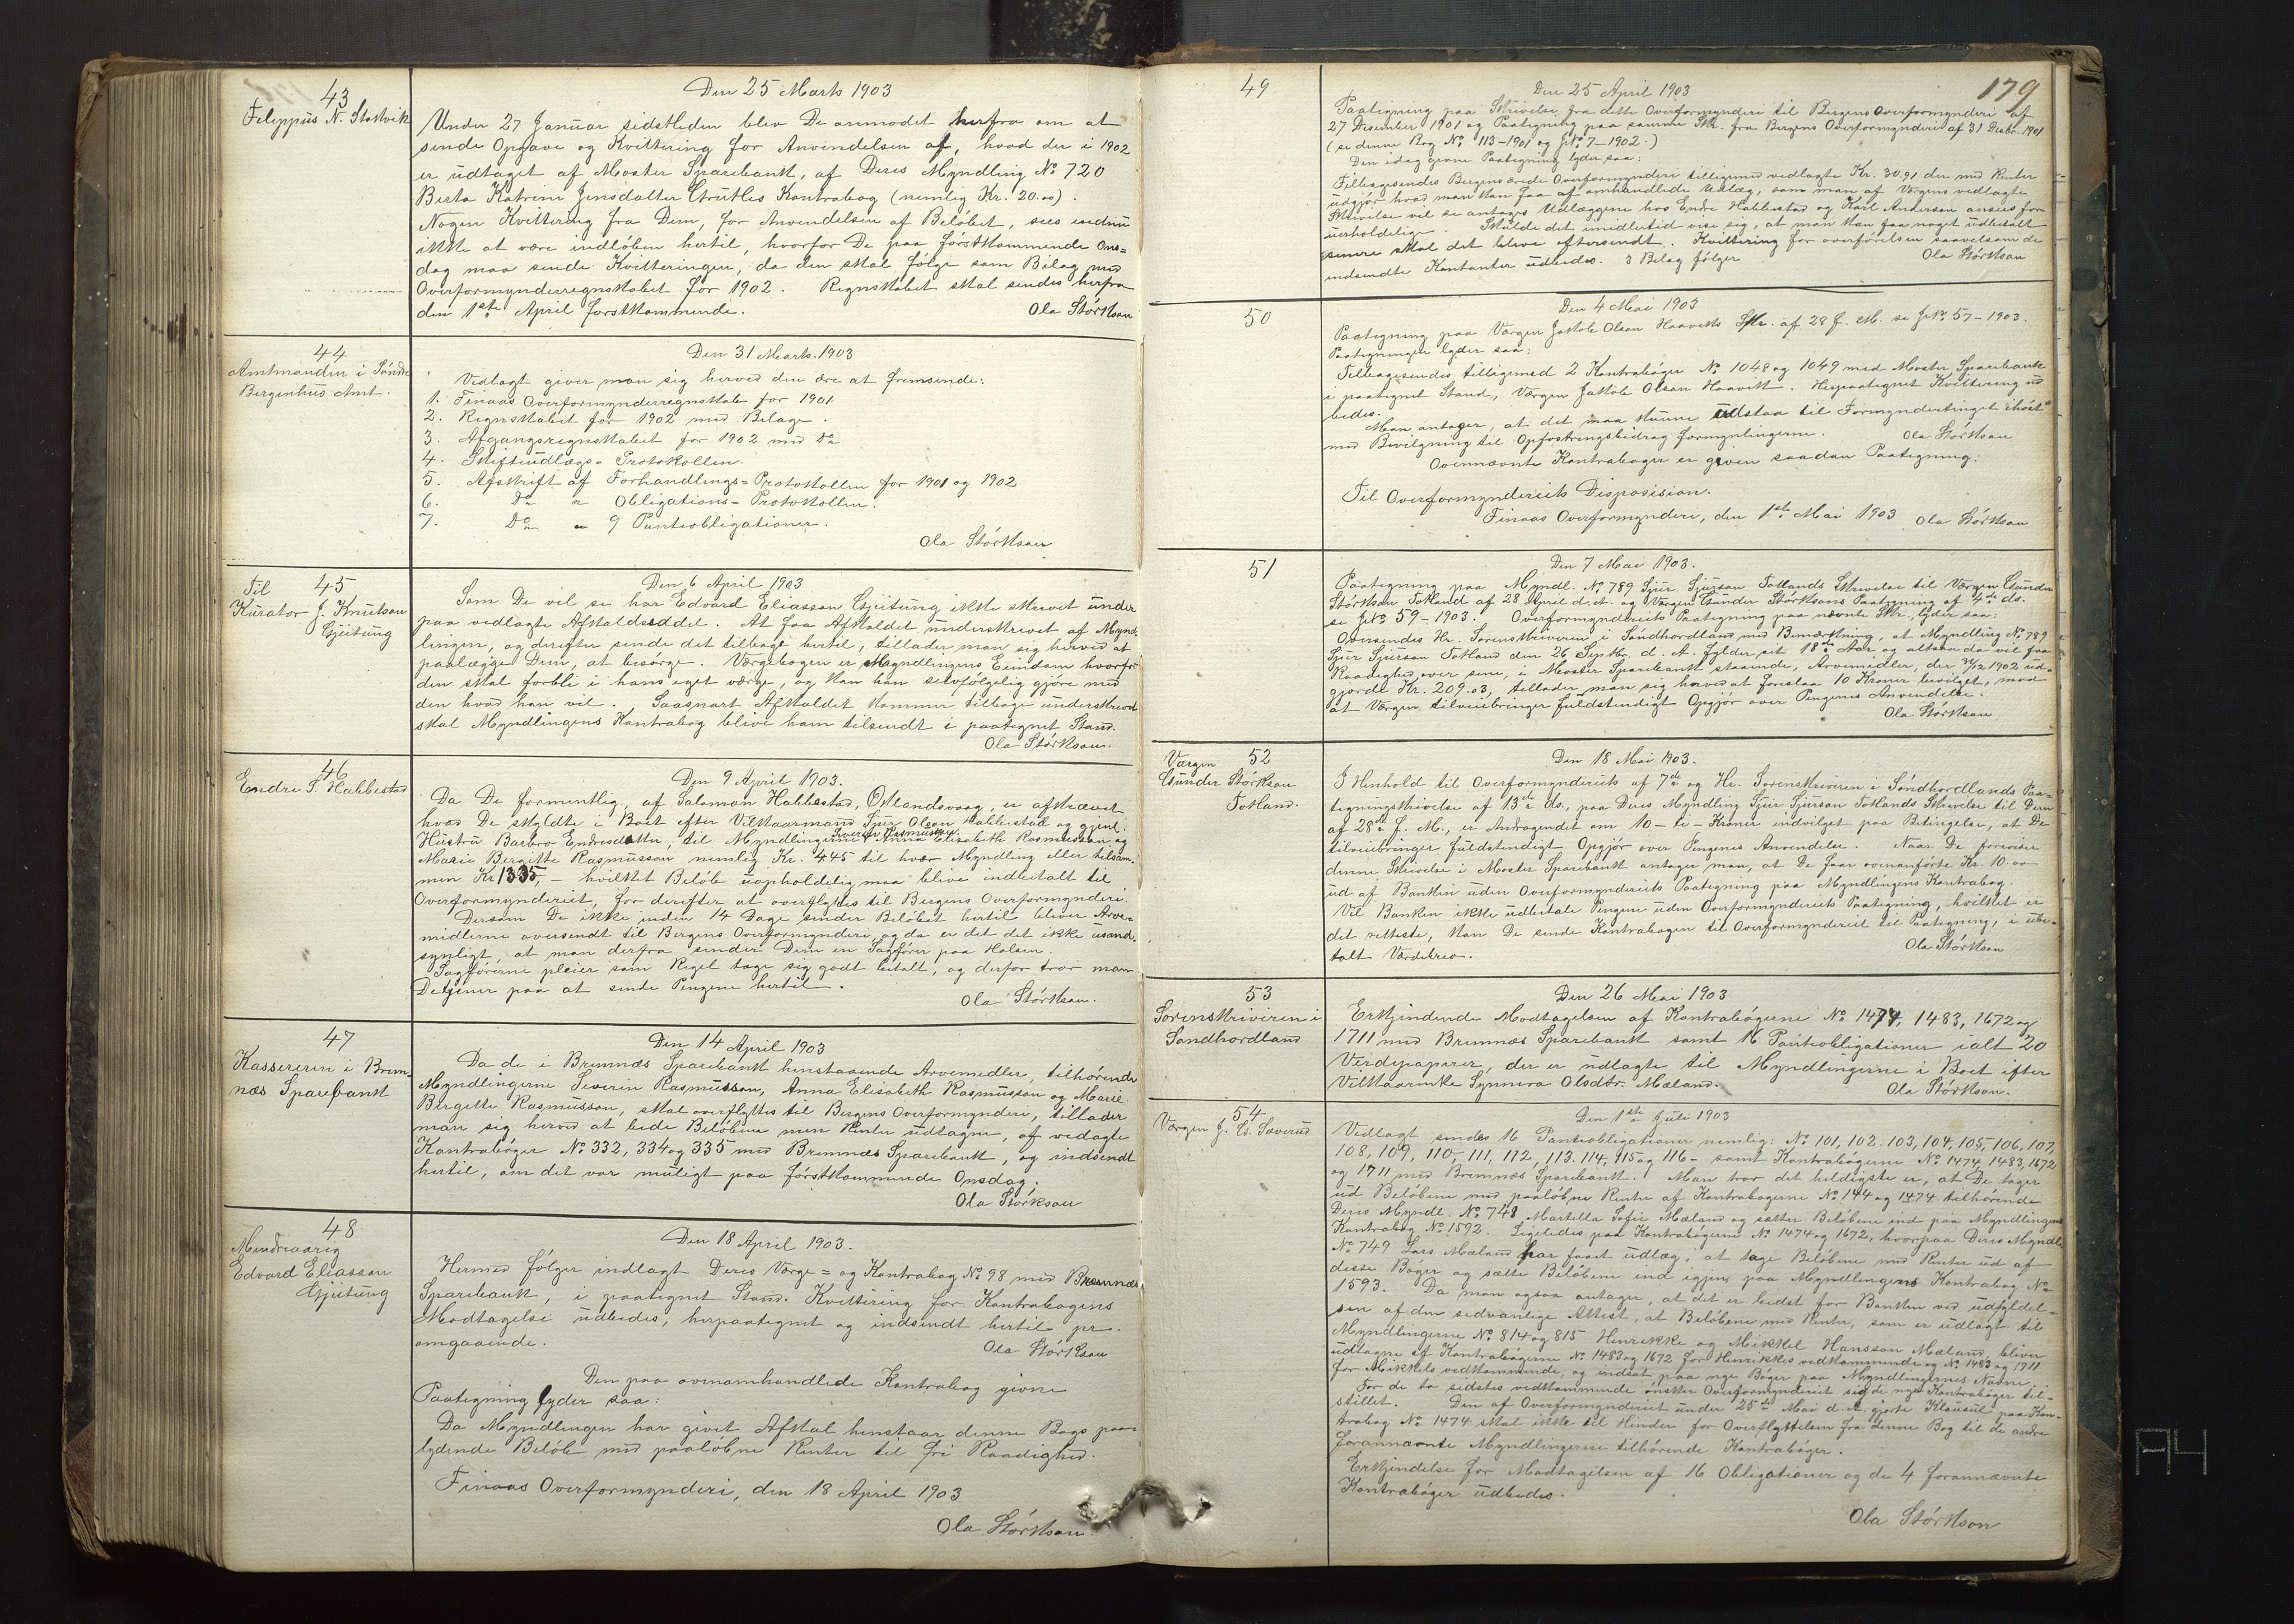 43
Filippus N. Stokvik
Den 25 Marts 1903
Under 27 Januar sidstleden blev De anmodet herfra om at
sende Opgave og Kvittering for Anvendelsen af, hvad der i 1902
er udtaget af Moster Sparebank, af Deres Myndling No 720
Berta Katrine Jensdatter Grutles Kontrabog (nemlig Kr. 20.00).
Nogen Kvittering fra Dem, for Anvendelsen af Beløbet, sees endnu
ikke at være indløben hertil, hvorfor De paa førstkommende Ons=
dag maa sende Kvitteringen, da den skal følge som Bilag med
Overformynderregnskabet for 1902. Regnskabet skal sendes herfra
den 1ste April førstkommende.
Ola Størkson
44
Amtmanden i Søndre
Bergenhus Amt.
Den 31 Marts 1903
Vedlagt giver man sig herved den ære at fremsende:
1. Finaas Overformynderregnskab for 1901
2. Regnskabet for 1902 med Bilage.
3. Afgangsregnskabet for 1902 med Do
4. Skifteudlægs=Protokollen.
5. Afskrift af Forhandlings=Protokollen for 1901 og 1902
6. Do " Obligations=Protokollen.
7. Do " 9 Panteobligationer.
Ola Størkson
Til 45
Kurator J. Knutson
Gjeitung
Den 6 April 1903
Som De vil se har Edvard Eliasson Gjeitung ikke skrevet under
paa vedlagte Afkaldseddel. At faa Afkaldet underskrevet af Mynd-
lingen, og derefter sende det tilbage hertil, tillader man sig herved at
paalægge Dem, at besørge. Værgebogen er Myndlingens Eiendom hvorfor
den skal forbli i hans eget værge, og kan han selvfølgelig gjøre med
den hvad han vil. Saasnart Afkaldet kommer tilbage underskrevet
skal Myndlingens Kontrabog blive ham tilsendt i paategnet Stand.
Ola Størkson.
46
Endre S. Habbestad
Den 9 April 1903.
Da De formentlig, af Salomon Habbestad, Oklandsvaag, er afkrævet
hvad De skyldte i Boet efter Vilkaarsmand Sjur Olson Habbestad og gjenl.
Hustru Barbro Endresdatter, til Myndlingerne Severin Rasmusson, Anna Elisabeth Rasmusson og
Marie Bergitte Rasmusson nemlig Kr. 445 til hver Myndling eller tilsam-
men Kr 1335,- hvilket Beløb uopholdelig maa blive indbetalt til
Overformynderiet, for derefter at overflyttes til Bergens Overformynderi.
Dersom De ikke inden 14 Dage sender Beløbet hertil bliver Arve-
midlerne oversendt til Bergens Overformynderi, og da er det det ikke usand-
synligt, at man derfra sender Dem en Sagfører paa Halsen.
Sagførerne pleier som Regel tage sig godt betalt, og derfor tror man
De tjener paa at sende Pengene hertil.
Ola Størkson.
47
Kassereren i Brem-
næs Sparebank
Den 14 April 1903
Da de i Bremnæs Sparebank henstaaende Arvemidler, tilhørende
Myndlingerne Severin Rasmusson, Anna Elisabeth Rasmusson og Marie
Bergitte Rasmusson, skal overflyttes til Bergens Overformynderi, tillader
man sig herved at bede Beløbene men Renter udtagne, af vedagte
Kontrabøger No 332, 334 og 335 med Bremnæs Sparebank, og indsendt
hertil, om det var muligt paa førstkommende Onsdag.
Ola Størkson
48
Mindreaarig
Edvard Eliasson
Gjeitung
Den 18 April 1903.
Hermed følger indlagt Deres Værge= og Kontrabog No 98 med Bremnæs
Sparebank, i paategnet Stand. Kvittering for Kontrabogens
Modtagelse udbedes, herpaategnet og indsendt hertil pr.
omgaaende.
Ola Størkson
Den paa ovenomhandlede Kontrabog givne
Paategning lyder saa:
Da Myndlingen har givet Afkal henstaar denne Bogs paa-
lydende Beløb med paaløbne Renter til fri Raadighed.
Finaas Overformynderi, den 18 April 1903
Ola Størkson.
179
49
Den 25 April 1903
Paategning paa Skrivelse fra dette Overformynderi til Bergens Overformynderi af
27 Desember 1901 og Paategning paa samme Skr. fra Bergens Overformynderi af 31 Desbr. 1901
(se denne Bog No 113-1901 og J No 7-1902.)
Den idag givne Paategning lyder saa:
Tilbagesendes Bergens ærede Overformynderi tilligemed vedlagte Kr. 30.91 der med Renter
udgjør hvad man kan faa af omhandlede Udlæg, som man af Værgens vedlagte
Skrivelse vil se antages Udlæggene hos Endre Habbestad og Karl Anderson ansees for
uerholdelige. Skulde det imidlertid vise sig, at man kan faa noget udbetalt
senere skal det blive eftersendt. Kvittering for overførelsen saavelsom de
indsendte Kontanter udbedes. 3 Bilag følger
Ola Størkson
50
Den 4 Mai 1903
Paategning paa Værgen Jakob Olson Haaviks Skr. af 28 f. M. se J No 57-1903.
Paategningen lyder saa:
Tilbagesendes tilligemed 2 Kontrabøger No 1048 og 1049 med Moster Sparebank
i paategnet Stand, Værgen Jakob Olson Haavik. Herpaategnet Kvittering ud
bedes.
Man antager, at det maa kunne udstaa til Formyndertinget ihøst
med Bevilgning til Opfostringsbidrag for myndlingerne.
Ola Størkson
Ovennævnte Kontrabøger er given saadan Paategning:
Til Overformynderiets Disposision.
Finaas Overformynderi, den 1ste Mai 1903 Ola Størkson
51
Den 7 Mai 1903.
Paategning paa Myndl. No 789 Sjur Sjurson Totlands Skrivelse til Værgen Gunder
Størkson Totland af 28 April d. A. og Værgen Gunder Størksons Paategning af 4de ds.
se J No 59-1903. Overformynderiets Paategning paa nævnte Skr. lyder saa:
Oversendes Hr. Sorenskriveren i Søndhordland med Bemærkning, at Myndling No 789
Sjur Sjurson Totland den 26 Septbr. d. A. fylder sit 18de Aar og altsaa da vil faa
Raadighed over sine, i Moster Sparebank staaende, Arvemidler, der 31/12 1902 ud-
gjorde Kr. 209.03, tillader man sig herved at foreslaa 10 Kroner bevilget, mod
at Værgen tilveiebringer fuldstendigt Opgjør over Pengenes Anvendelse.
Ola Størkson
52
Værgen
Gunder Størkson
Totland.
Den 18 Mai 1903.
I Henhold til Overformynderiets af 7de og Hr. Sorenskriveren i Søndhordlands Paa-
tegningsskrivelse af 13de ds., paa Deres Myndling Sjur Sjurson Totlands Skrivelse til Dem
af 28de f. M., er Andragendet om 10 - ti - Kroner indvilget paa Betingelse, at De
tilveiebringer fuldstendigt Opgjør over Pengenes Anvendelse. Naar De foreviser
denne Skrivelse i Moster Sparebank antager man, at De faar ovenanførte Kr. 10.00
ud af Banken uden Overformynderiets Paategning paa Myndlingens Kontrabog.
Vil Banken ikke udbetale Pengene uden Overformynderiets Paategning, hvilket er
det retteste, kan De sende Kontrabogen til Overformynderiet til Paategning, i ube-
talt Værdibrev.
Ola Størkson
53
Sorenskriveren i
Søndhordland
Den 26 Mai 1903
Erkjendende Modtagelsen af Kontrabøgerne No 1474, 1483, 1672 og
1711 med Bremnæs Sparebank samt 16 Panteobligationer ialt 20
Verdipaparer, der er udlagte til Myndlingerne i Boet efter
Vilkaarinke Synneva Olsdtr. Mæland.
Ola Størkson.
54
Værgen J. G. Sæverud
Den 1ste Juli 1903
Vedlagt sendes 16 Panteobligationer nemlig: No 101, 102, 103, 104, 105, 106, 107,
108, 109, 110, 111, 112, 113, 114, 115 og 116 - samt Kontrabøgerne No 1474, 1483, 1672
og 1711 med Bremnæs Sparebank. Man tror det heldigste er, at De tager
ud Beløbene med paaløbne Renter af Kontrabøgerne No 144 og 1474 tilhørende
Deres Myndl. No 748 Martella Sofie Mæland og sætter Beløbene ind paa Myndlingens
Kontrabog No 1592. Ligeledes paa Kontrabøgerne No 1474 og 1672, hvorpaa Deres Myndl.
No 749 Lars Mæland har faaet udlæg, at tage Beløbene med Renter ud af
disse Bøger og sætte Beløbene ind igjen paa Myndlingens Kontrabog No
1593. Da man ogsaa antager, at det er bedst for Banken ved udfyldel-
sen af den sedvanlige Attest, at Beløbene med Renter, som er udlagt til
Myndlingerne No 814 og 815 Henrikke og Mikkel Hansson Mæland, bliver
udtagne af Kontrabøgerne No 1483 og 1672 for Henrikkes vedkommende og No 1483 og 1711
for Mikkels vedkommende, og indsat paa nye Bøger paa Myndlingernes Navne.
For de to sidstes vedkommende ønsker Overformynderiet sig de nye Kontrabøger til-
stillet. Den af Overformynderiet under 25de Mai d. A. gjorte Klausul paa Kon-
trabog No 1474 skal ikke til Hinder for Overflyttelsen fra denne Bog til de andre
forannævnte Myndlingerne tilhørende Kontrabøger.
Erkjendelse for Modtagelsen af 16 Obligationer og de 4 forannævnte
Kontrabøger udbedes.
Ola Størkson
A4